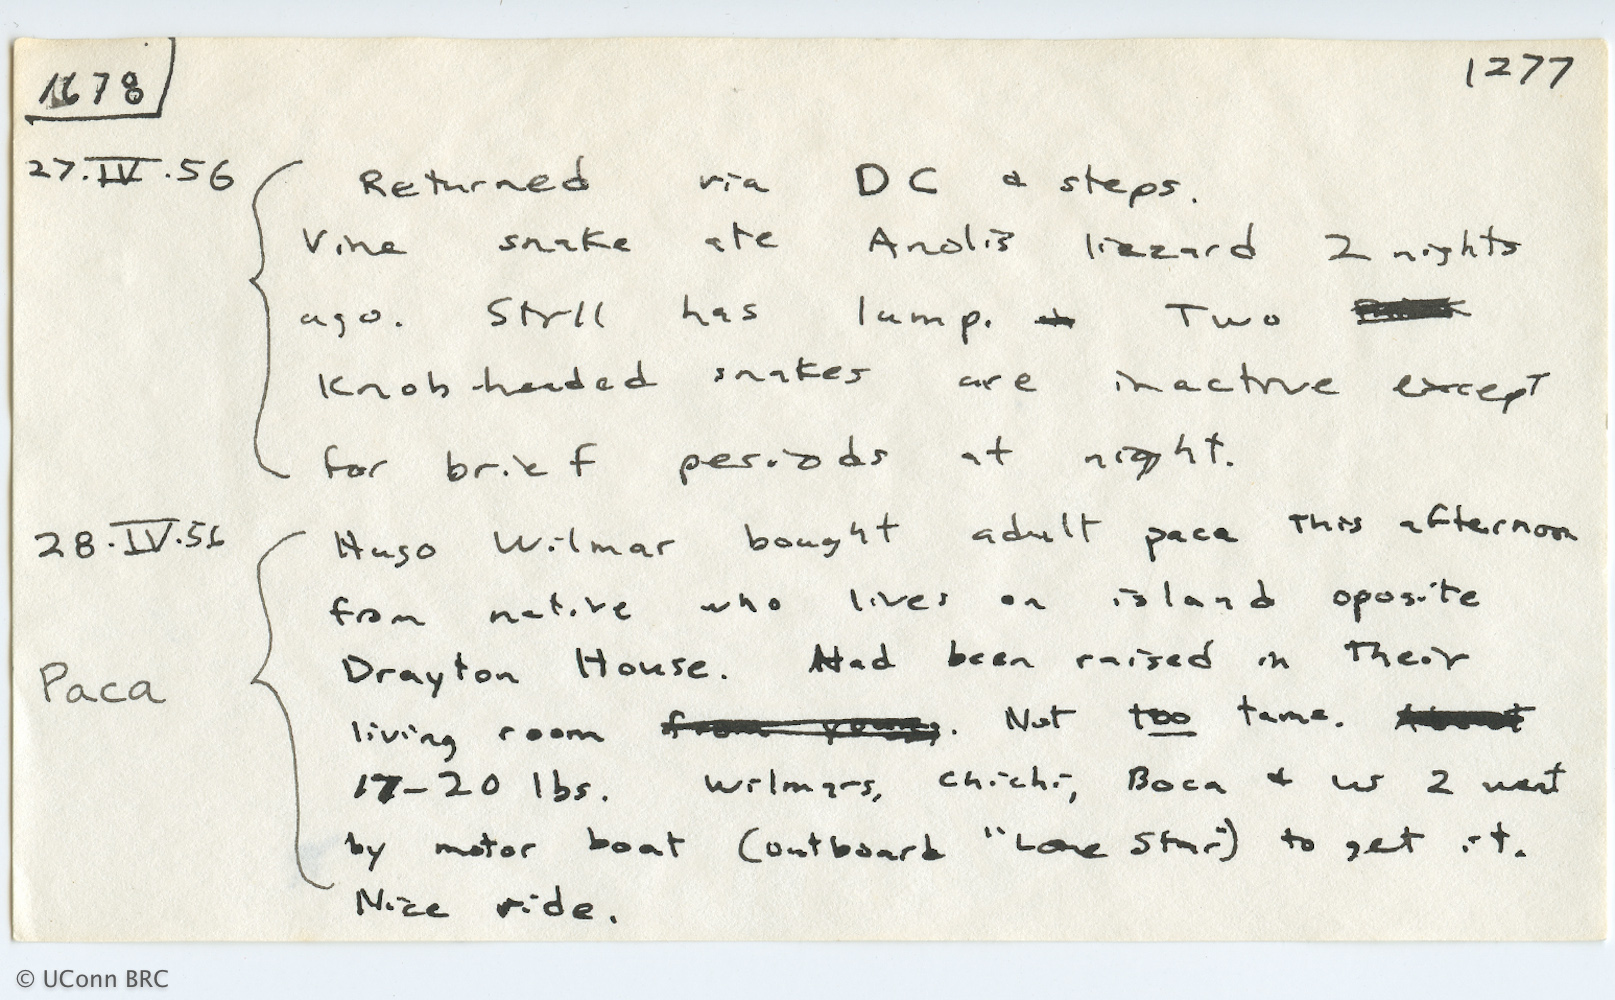 1678
1277
27.IV.56
Returned via DC & steps.
Vine snake ate Anolis lizzard 2 nights
ago. Still has lump. Two
Knob-headed snakes are inactive except
for brief periods at night.
28.IV.56
Hugo Wilmar bought adult paca this afternoon
from native who lives on island oposite
Drayton House. Had been raised in their
Paca
living room from young. Not too tame.
17-20 lbs. Wilmars, Chichi, Boca & us 2 went
by motor boat (outboard "Lone Star") to get it.
Nice ride.
© UConn BRC